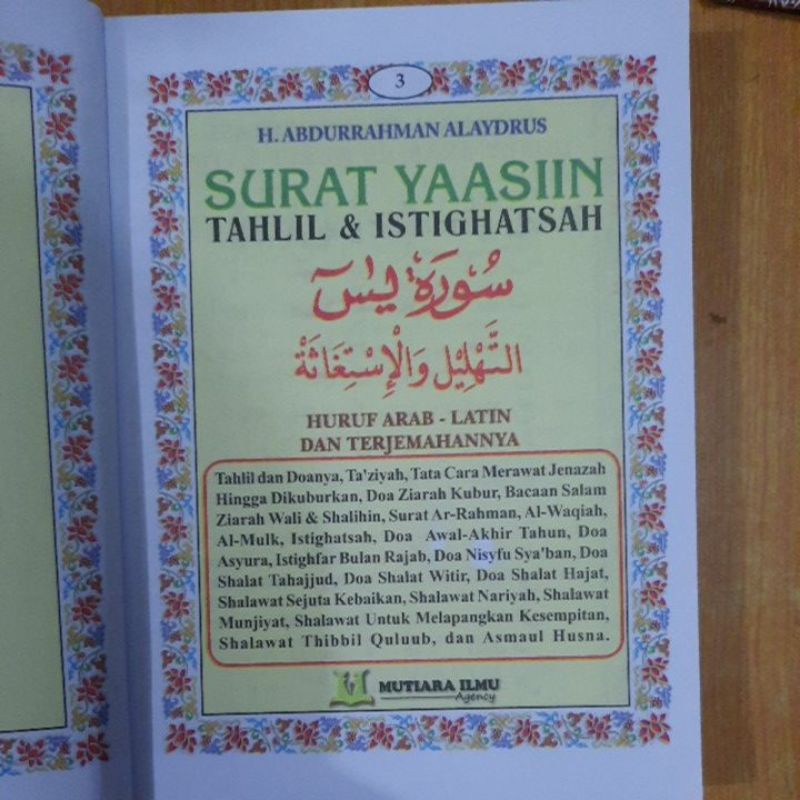 3
H. ABDURRAHMAN ALAYDRUS
SURAT YAASIIN
TAHLIL & ISTIGHATSAH
سُورَة يٰسٓ
التَّهْلِيْل وَالْإِسْتِغَاثَة
HURUF ARAB - LATIN
DAN TERJEMAHANNYA
Tahlil dan Doanya, Ta'ziyah, Tata Cara Merawat Jenazah
Hingga Dikuburkan, Doa Ziarah Kubur, Bacaan Salam
Ziarah Wali & Shalihin, Surat Ar-Rahman, Al-Waqiah,
Al-Mulk, Istighatsah, Doa Awal-Akhir Tahun, Doa
Asyura, Istighfar Bulan Rajab, Doa Nisyfu Sya'ban, Doa
Shalat Tahajjud, Doa Shalat Witir, Doa Shalat Hajat,
Shalawat Sejuta Kebaikan, Shalawat Nariyah, Shalawat
Munjiyat, Shalawat Untuk Melapangkan Kesempitan,
Shalawat Thibbil Quluub, dan Asmaul Husna.
MUTIARA ILMU
Agency